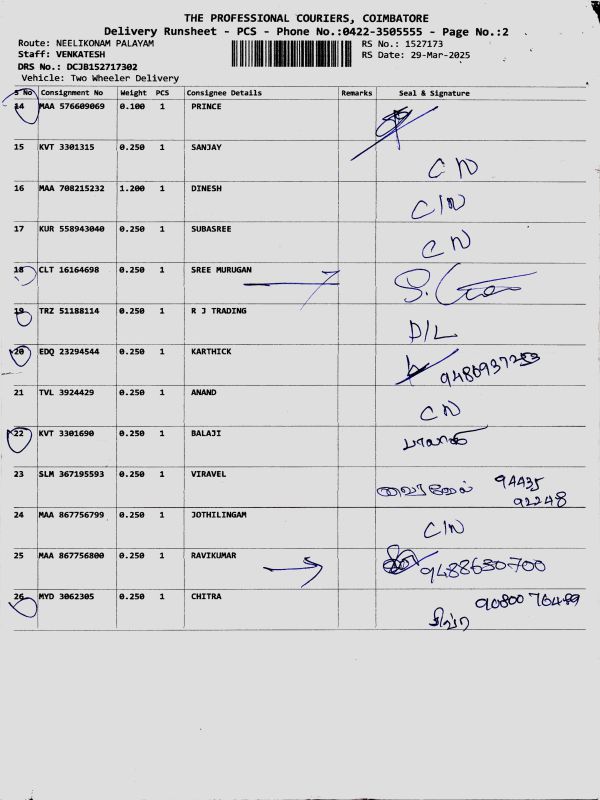 THE PROFESSIONAL COURIERS, COIMBATORE
Delivery Runsheet - PCS - Phone No.:0422-3505555 - Page No.:2
Route: NEELIKONAM PALAYAM
RS No.: 1527173
Staff: VENKATESH
RS Date: 29-Mar-2025
DRS No.: DCJB152717302
Vehicle: Two Wheeler Delivery
S No Consignment No Weight PCS Consignee Details Remarks Seal & Signature
14 MAA 576609069 0.100 1 PRINCE
15 KVT 3301315 0.250 1 SANJAY C/N
16 MAA 708215232 1.200 1 DINESH C/N
17 KUR 558943040 0.250 1 SUBASREE C/N
18 CLT 16164698 0.250 1 SREE MURUGAN
19 TRZ 51188114 0.250 1 R J TRADING D/L
20 EDQ 23294544 0.250 1 KARTHICK
21 TVL 3924429 0.250 1 ANAND C/N
22 KVT 3301690 0.250 1 BALAJI பாலாஜி
23 SLM 367195593 0.250 1 VIRAVEL 94435
92248
24 MAA 867756799 0.250 1 JOTHILINGAM C/N
25 MAA 867756800 0.250 1 RAVIKUMAR 9488630700
26 MYD 3062305 0.250 1 CHITRA 90800 76489
சித்ரா